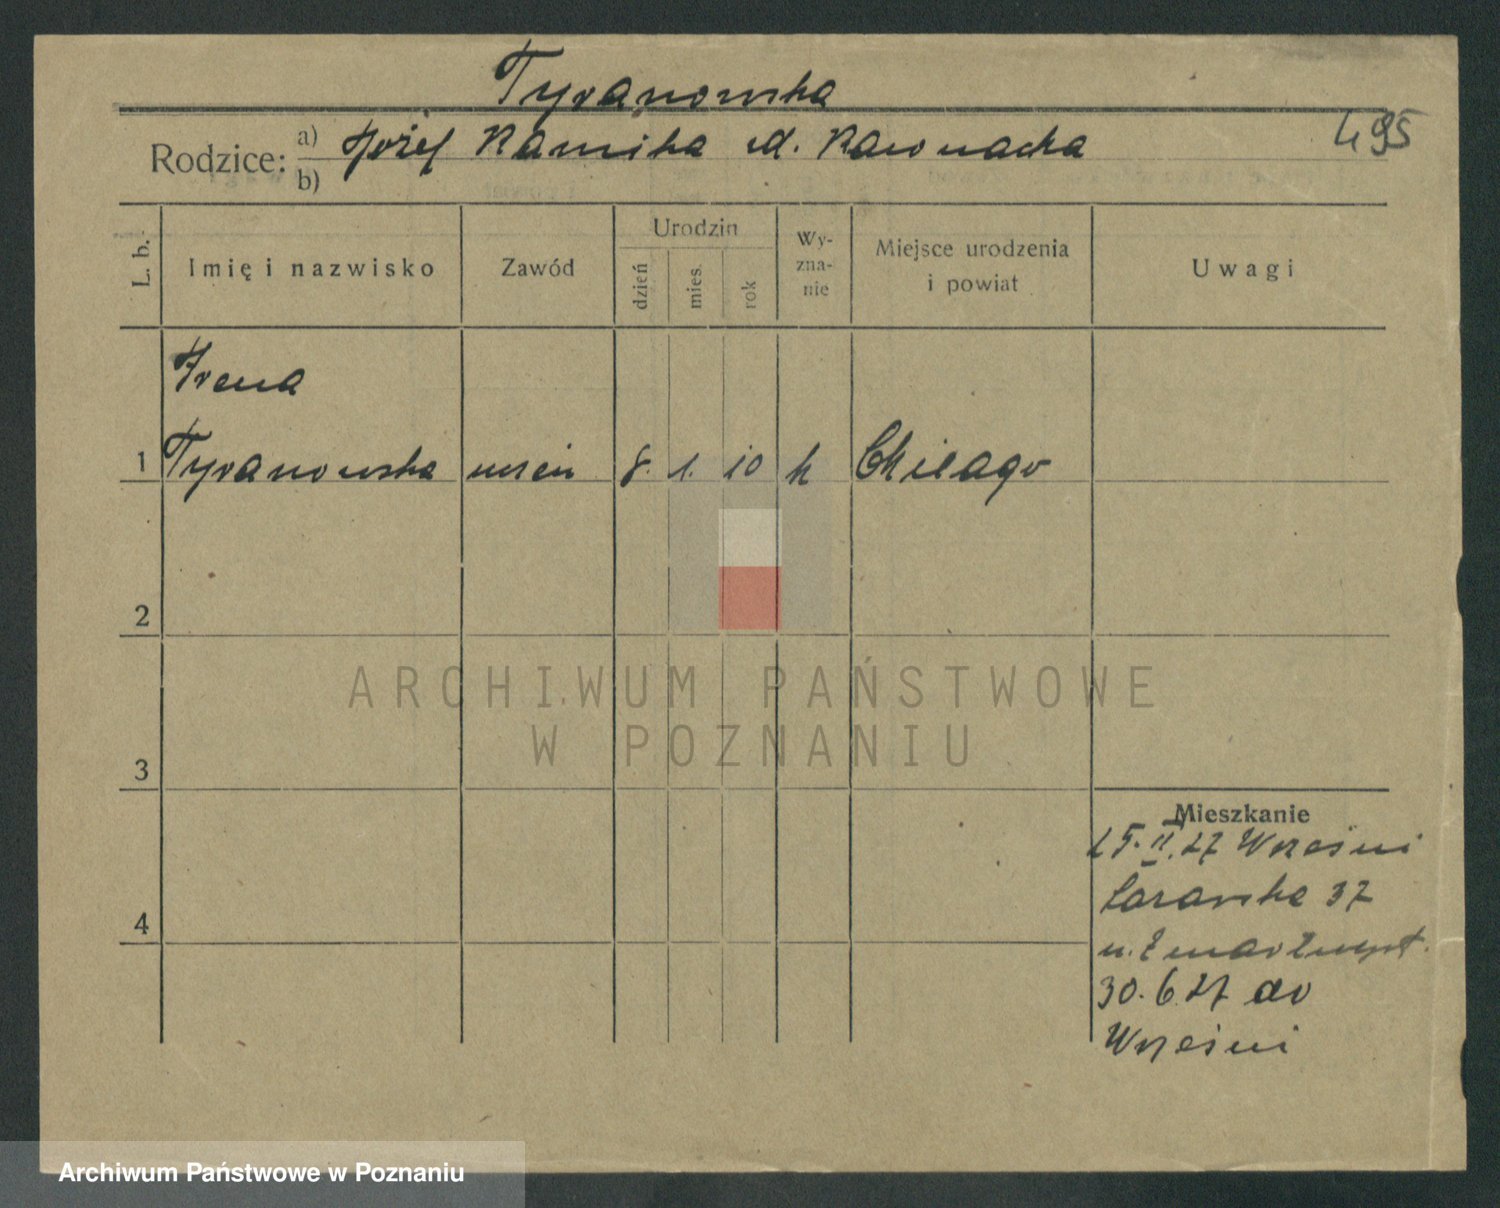 Tyranowska
495
Rodzice: a) Józef Kamiła d. Kawnacka
b)
L. b. Imię i nazwisko Zawód Urodzin Wy- Miejsce urodzenia Uwagi
dzień mies. rok zna- i powiat
nie
Irena
1 Tyranowska uczeń 8. 1. 10 k Chicago
2
ARCHIWUM PAŃSTWOWE
W POZNANIU
3
Mieszkanie
15. II. 27 Wrześni
37
4
30.6.27 do
Wrześni
Archiwum Państwowe w Poznaniu